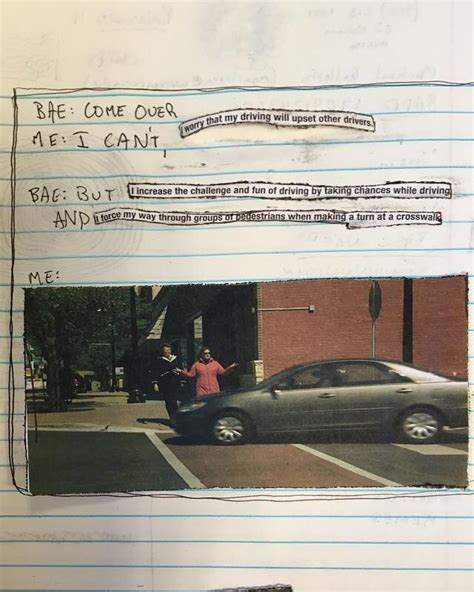 BAE: COME OVER
ME: I CAN'T, worry that my driving will upset other drivers.
BAE: BUT I increase the challenge and fun of driving by taking chances while driving
AND I force my way through groups of pedestrians when making a turn at a crosswalk
ME: